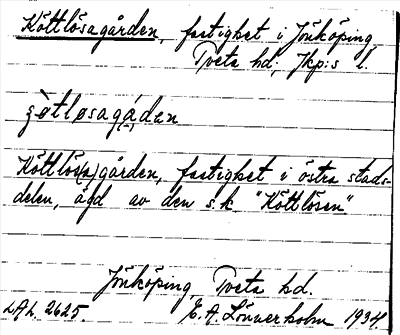 Köttlösagården, fastighet i Jönköping,
Tveta hd; Jkp:s l.
Köttlös(a)gården, fastighet i östra stads-
delen, ägd av den s.k. "Köttlösen"
Jönköping, Tveta hd.
LAL 2625. E. A. Lönnerholm 1934